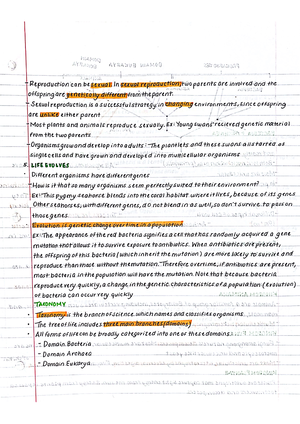 - Reproduction can be sexual. In sexual reproduction, two parents are involved and the
offspring are genetically different from the parent.
- Sexual reproduction is a successful strategy in changing environments, since offspring
are unlike either parent
- Most plants and animals reproduce sexually. Ex: Young swans' recieved genetic material
from the two parents
- Organisms grow and develop into adults: The plantlets and these swans all started as
single cells and have grown and developed into multicellular organisms
5. LIFE EVOLVES
- Different organisms have different genes
- How is it that so many organisms seem perfectly suited to their environment?
Ex: This pygmy seahorse blends into the coral habitat where it lives, because of its genes
Other seahorses, with different genes, do not blend in as well, so don't survive to pass on
those genes
- Evolution is genetic change over time in a population
Ex: The appearance of the red bacteria signifies a cell that has randomly acquired a gene
mutation that allows it to survive exposure to antibiotics. When antibiotics are present,
the offspring of this bacteria (which inherit the mutation) are more likely to survive and
reproduce than most without the mutation. Therefore, over time, if antibiotics are present,
most bacteria in the population will have the mutation. Note that because bacteria
reproduce very quickly, a change in the genetic characteristics of a population (evolution)
of bacteria can occur very quickly
TAXONOMY
- Taxonomy is the branch of science which names and classifies organisms
- The tree of life involves three main branches (domains)
- All forms of life can be broadly categorized into one of these domains:
- Domain Bacteria
- Domain Archaea
- Domain Eukarya